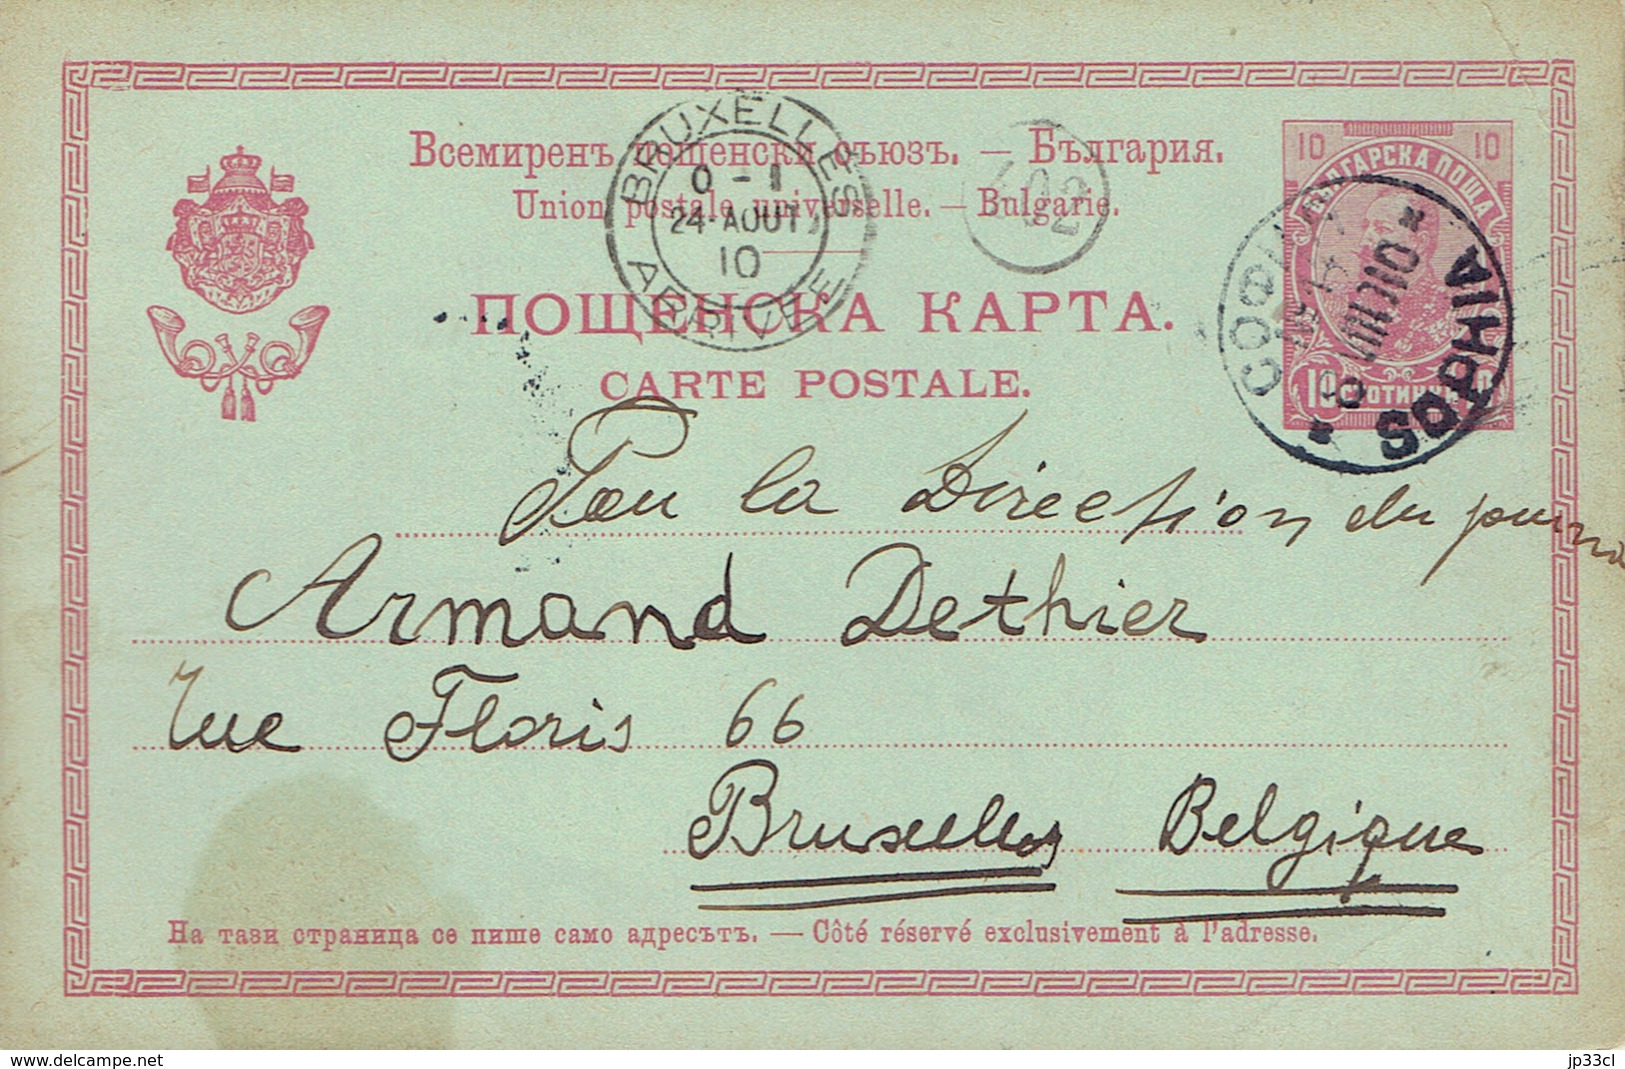 Всемиренъ пощенски съюзъ. — България.
Union postale universelle. — Bulgarie.
ПОЩЕНСКА КАРТА.
CARTE POSTALE.
BRUXELLES
0 - 1
24 - AOUT
10
ARRIVEE
402
2
10 10
БЪЛГАРСКА ПОЩА
10 СТОТИНКИ 10
СОФИЯ
SOPHIA
Pou la Direction du journa
Armand Dethier
Rue Floris 66
Bruxelles Belgique
На тази страница се пише само адресътъ. — Côté réservé exclusivement à l'adresse.
www.delcampe.net
jp33cl